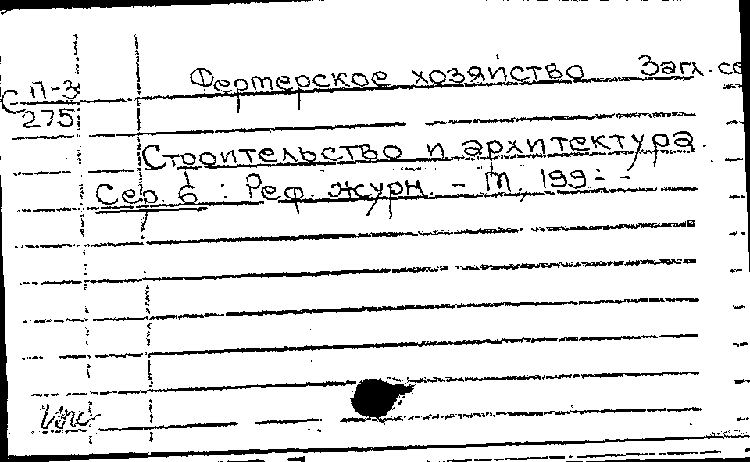 Фермерское хозяйство Загл. се
С П-3
275
Строительство и архитектура.
Сер. 6 : Реф. журн. – М., 199